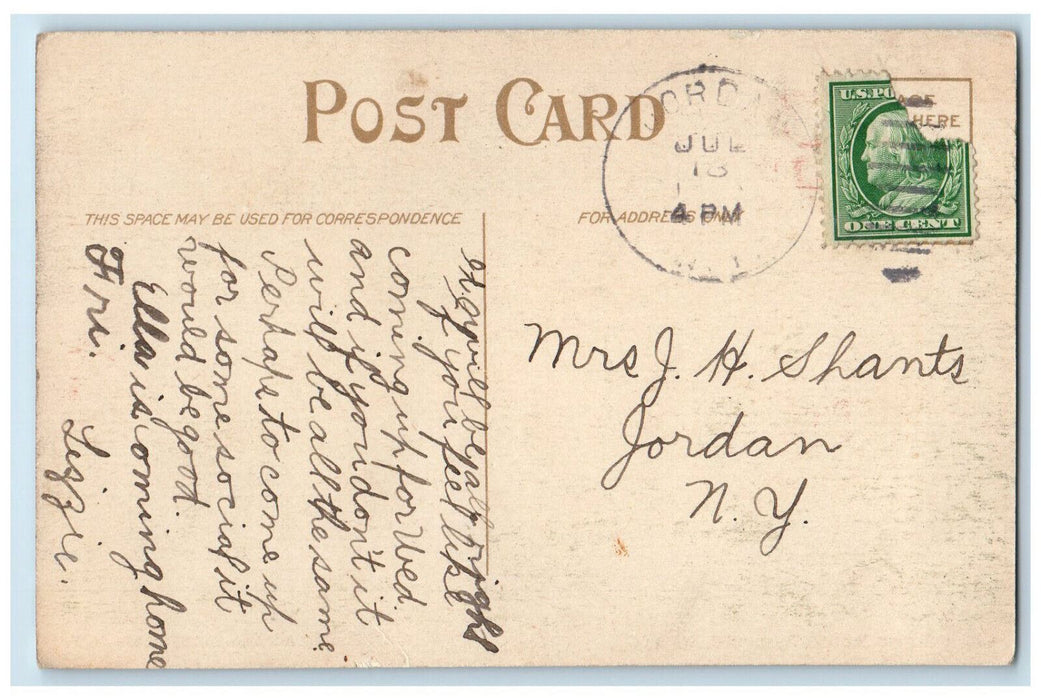 POST CARD
JORDAN
JUL
18
4 PM
N.Y.
U.S.PO
AGE
HERE
ONE CENT
THIS SPACE MAY BE USED FOR CORRESPONDENCE
FOR ADDRESS ONLY
It will be all right
if you feel like
coming up for Wed.
and if you don't it
will be all the same
Perhaps to come up
for some social it
would be good.
Ella is coming home
Fri. Lizzie.
Mrs J. H. Shants
Jordan
N.Y.